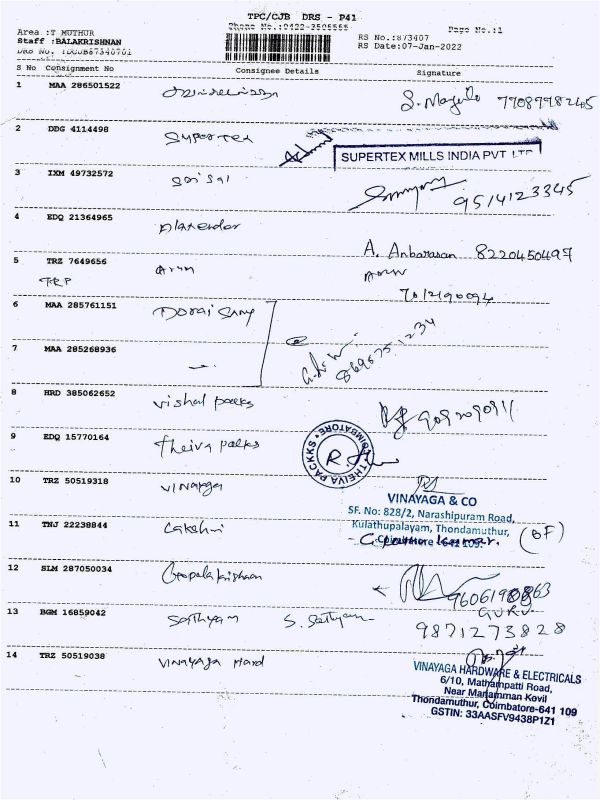 TPC/CJB DRS - P41
Phone No.:0422-3505555
Page No.:1
Area :T MUTHUR
RS No.:873407
Staff :BALAKRISHNAN
RS Date:07-Jan-2022
S No Consignment No Consignee Details Signature
1 MAA 286501522 S. 7708998245
2 DDG 4114498 Supertex
SUPERTEX MILLS INDIA PVT LTD
3 IXM 49732572 Sri Sai 9514123345
4 EDQ 21364965 A. Anbarasan 8220450497
5 TRZ 7649656 Arun Arun
TRP
6 MAA 285761151 Dorai Samy
7 MAA 285268936 869675 1234
8 HRD 385062652 Vishal packs
9 EDQ 15770164 Theiva packs
THEIVA PACKKS COIMBATORE
10 TRZ 50519318 Vinayaga
VINAYAGA & CO
SF. No: 828/2, Narashipuram Road,
Kulathupalayam, Thondamuthur,
Coimbatore -641 109.
11 TNJ 22238844 Lakshmi Kumar. (BF)
12 SLM 287050034 Gopalakrishnan
GURU
13 BGM 16859042 Sathyam S. Sathyam 9871273828
14 TRZ 50519038 Vinayaga Hard
VINAYAGA HARDWARE & ELECTRICALS
6/10, Mathampatti Road,
Near Mariamman Kovil
Thondamuthur, Coimbatore-641 109
GSTIN: 33AASFV9438P1Z1